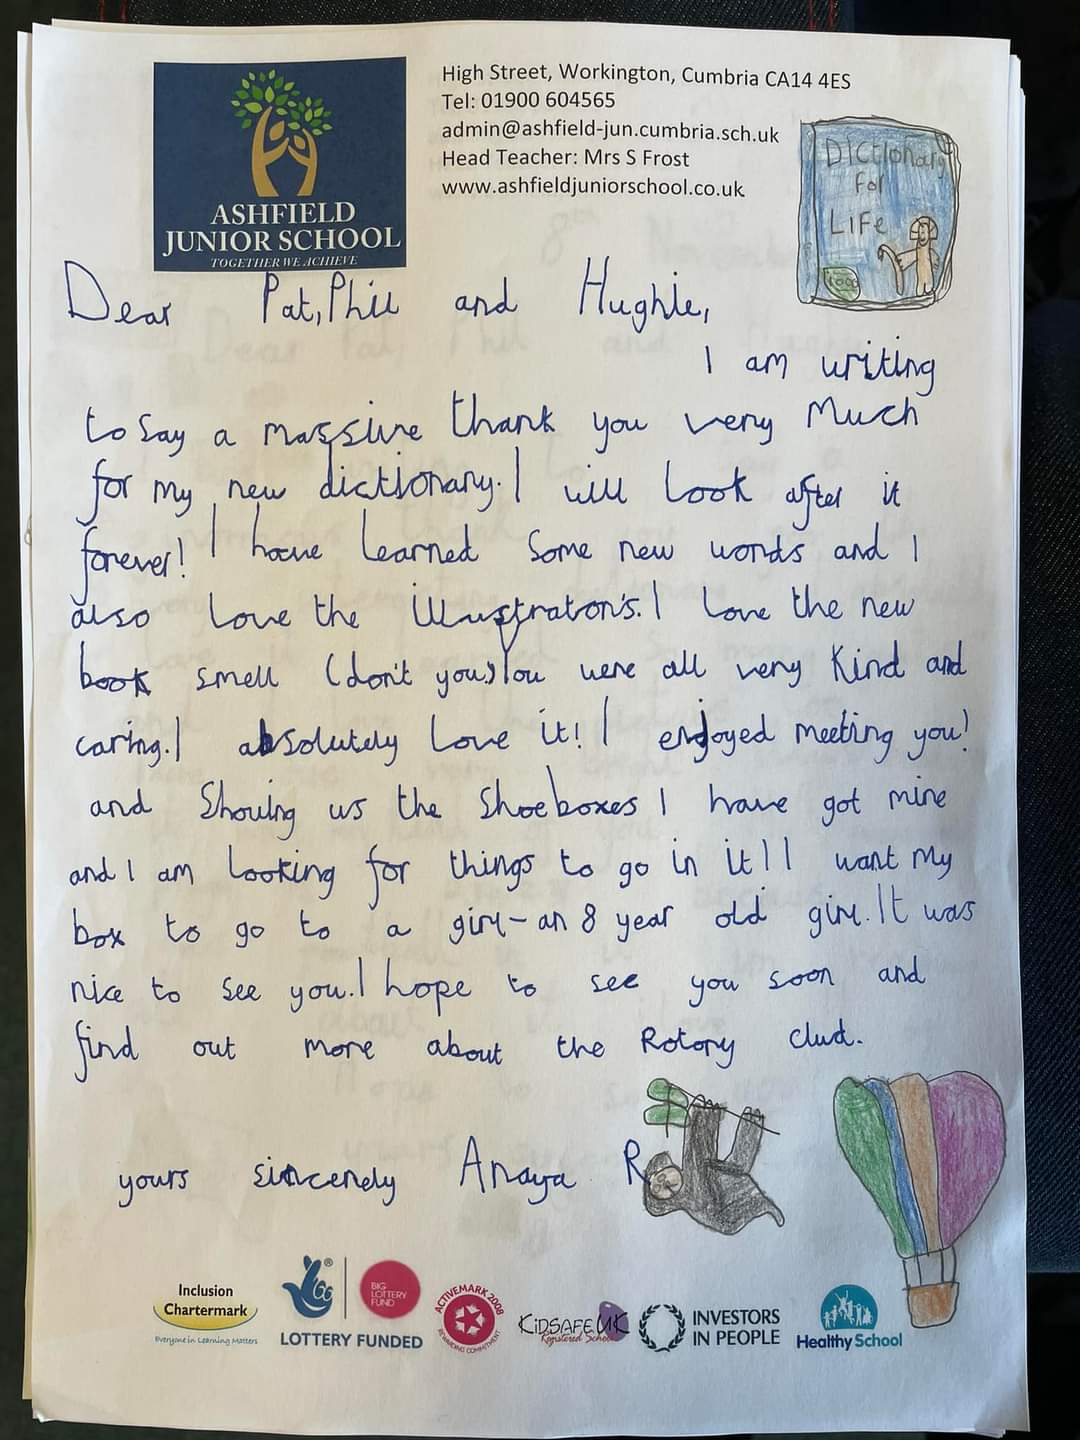 High Street, Workington, Cumbria CA14 4ES
Tel: 01900 604565
admin@ashfield-jun.cumbria.sch.uk
Head Teacher: Mrs S Frost
www.ashfieldjuniorschool.co.uk
ASHFIELD
JUNIOR SCHOOL
TOGETHER WE ACHIEVE
Dictionary
For
Life
Dear Pat, Phil and Hughie,
I am writing
to say a massive thank you very much
for my new dictionary. I will look after it
forever! I have learned some new words and I
also love the illustraton's. I love the new
book smell (don't you) You were all very kind and
caring. I absolutely love it! I enjoyed meeting you!
and showing us the shoeboxes I have got mine
and I am looking for things to go in it! I want my
box to go to a girl - an 8 year old girl. It was
nice to see you. I hope to see you soon and
find out more about the Rotory clud.
yours sincerely Anaya R
Inclusion
Chartermark
Everyone in Learning Matters
BIG
LOTTERY
FUND
LOTTERY FUNDED
ACTIVEMARK 2008
REWARDING COMMITMENT
KiDSAFE UK
Registered School
INVESTORS
IN PEOPLE
Healthy School